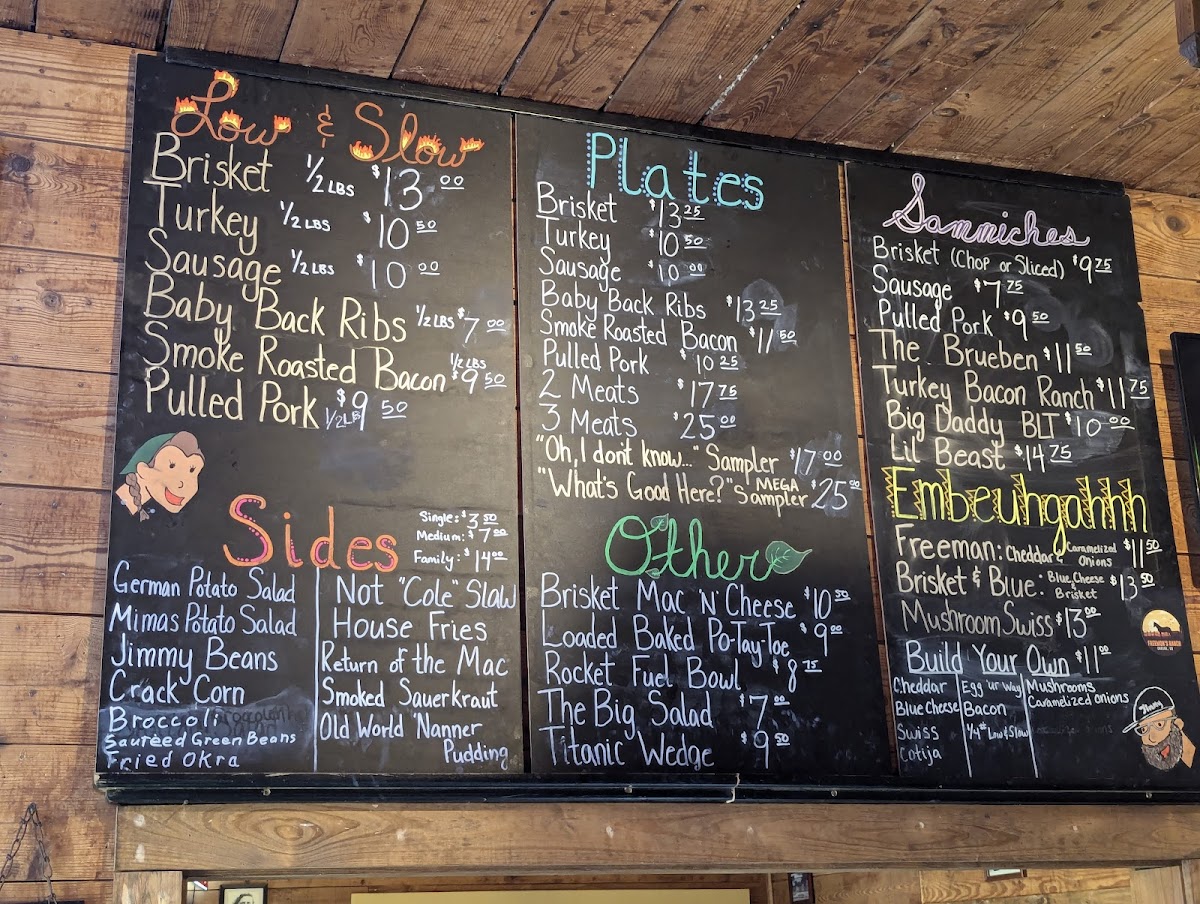 Low & Slow
Brisket 1/2 LBS $13.00
Turkey 1/2 LBS $10.50
Sausage 1/2 LBS $10.00
Baby Back Ribs 1/2 LBS $7.00
Smoke Roasted Bacon 1/2 LBS $9.50
Pulled Pork 1/2 LB $9.50
Sides
Single: $3.50
Medium: $7.00
Family: $14.00
German Potato Salad
Mimas Potato Salad
Jimmy Beans
Crack Corn
Broccoli
Sauteed Green Beans
Fried Okra
Not "Cole" Slaw
House Fries
Return of the Mac
Smoked Sauerkraut
Old World 'Nanner
Pudding
Plates
Brisket $13.25
Turkey $10.50
Sausage $10.00
Baby Back Ribs $13.25
Smoke Roasted Bacon $11.50
Pulled Pork $10.25
2 Meats $17.75
3 Meats $25.00
"Oh, I don't know..." Sampler $17.00
"What's Good Here?" MEGA Sampler $25.00
Other
Brisket Mac 'N' Cheese $10.50
Loaded Baked Po-Tay-Toe $9.00
Rocket Fuel Bowl $8.75
The Big Salad $7.00
Titanic Wedge $9.50
Sammiches
Brisket (Chop or Sliced) $9.75
Sausage $7.75
Pulled Pork $9.50
The Brueben $11.50
Turkey Bacon Ranch $11.75
Big Daddy BLT $10.00
Lil Beast $14.75
Embeuhgahhh
Freeman: Cheddar & Caramelized Onions $11.50
Brisket & Blue: Blue Cheese Brisket $13.50
Mushroom Swiss $13.00
Build Your Own $11.00
Cheddar
Blue Cheese
Swiss
Cotija
Egg ur Way
Bacon
1/4 lb Low & Slow
Mushrooms
Caramelized Onions